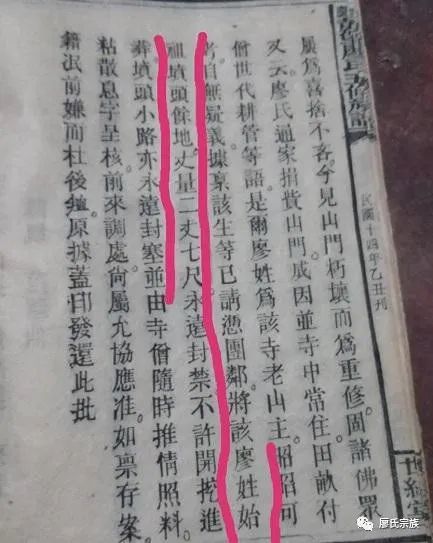 屢爲喜捨不吝今見山門朽壞而爲重修固諸佛眾
又云廖氏通家捐貲山門成因並寺中常住田畝付
僧世代耕管等語是爾廖姓爲該寺老山主昭昭可
考自無疑義據稟該生等已請憑團鄰將該廖姓始
祖墳頭餘地丈量二丈七尺永遠封禁不許開挖進
葬墳頭小路亦永遠封塞並由寺僧隨時推情照料
粘散息字呈核前來調處尙屬允協應准如稟存案
籍泯前嫌而杜後釁原據蓋印發還此批
民國十四年乙丑刊
世綵堂
廖氏宗族